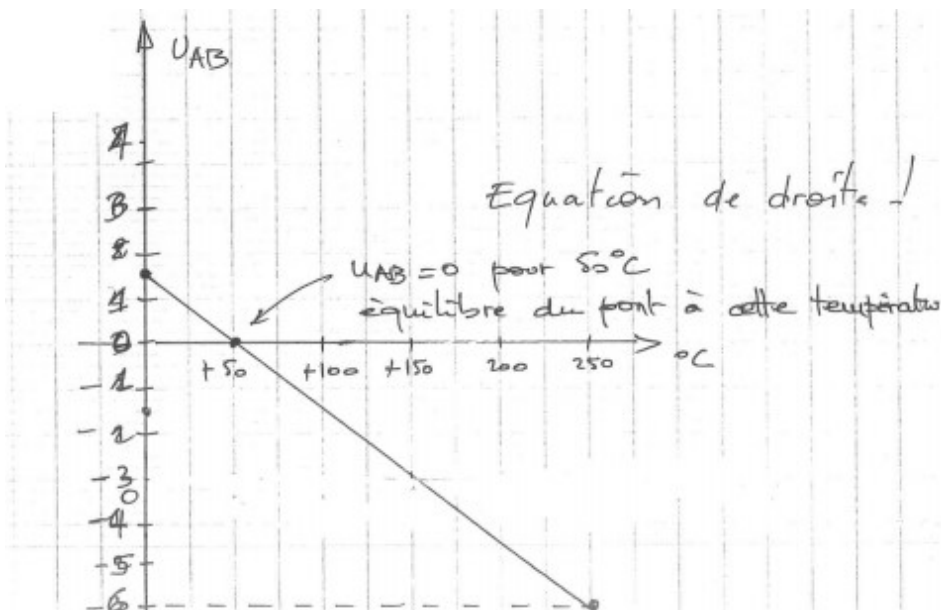 UAB
4
3
2
Equation de droite !
UAB = 0 pour 50°C
équilibre du pont à cette températu
1
0
+50 +100 +150 200 250 °C
-1
-2
-3
0
-4
-5
-6